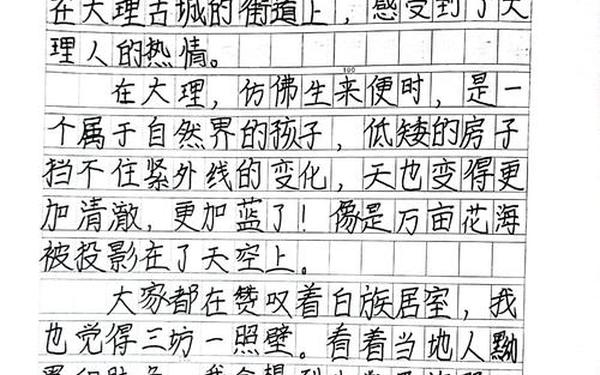 在大理古城的街道上，感受到了大
理人的热情。
100
在大理，仿佛生来便时，是一
个属于自然界的孩子，低矮的房子
挡不住紧外线的变化，天也变得更
加清澈，更加蓝了！像是万亩花海
被投影在了天空上。
大家都在赞叹着白族居室，我
也觉得三坊一照壁。看着当地人黝